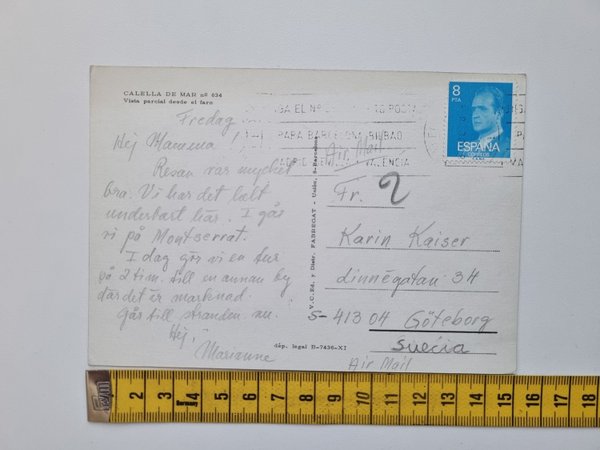 CALELLA DE MAR nº 634
Vista parcial desde el faro
Fredag
Hej Mamma!
Resan var mycket
bra. Vi har det helt
underbart här. I går
vi på Montserrat.
I dag gör vi en tur
på 2 tim. till en annan by
där det är marknad.
Går till stranden nu.
Hej!
Marianne
V.C.Ed. y Distr. FABREGAT - Unión, 8-Barcelona
dép. legal B-7436-XI
PARA BARCELONA BILBAO
VALENCIA
8
PTA
ESPAÑA
CORREOS
Air Mail
Fr.
2
Karin Kaiser
Linnégatan 34
S-413 04 Göteborg
Suecia
Air Mail
1 2 3 4 5 6 7 8 9 10 11 12 13 14 15 16 17 18
Germany